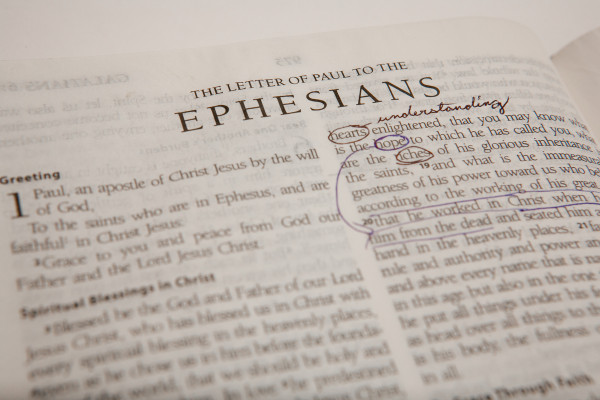 THE LETTER OF PAUL TO THE
EPHESIANS
Greeting
1 Paul, an apostle of Christ Jesus by the will
of God,
To the saints who are in Ephesus, and are
faithful in Christ Jesus:
²Grace to you and peace from God our
Father and the Lord Jesus Christ.
Spiritual Blessings in Christ
³Blessed be the God and Father of our Lord
Jesus Christ, who has blessed us in Christ with
every spiritual blessing in the heavenly places,
even as he chose us in him before the founda-
of the world, that we should be holy and
he predestined
understanding
hearts enlightened, that you may know
is the hope to which he has called you,
are the riches of his glorious inheritance
the saints, ¹⁹and what is the immeasur
greatness of his power toward us who be
according to the working of his great
²⁰that he worked in Christ when
him from the dead and seated him
hand in the heavenly places, ²¹fa
rule and authority and power an
and above every name that is na
in this age but also in the one
he put all things under his
as head over all things to th
is his body, the fullness
in all.
Through Faith